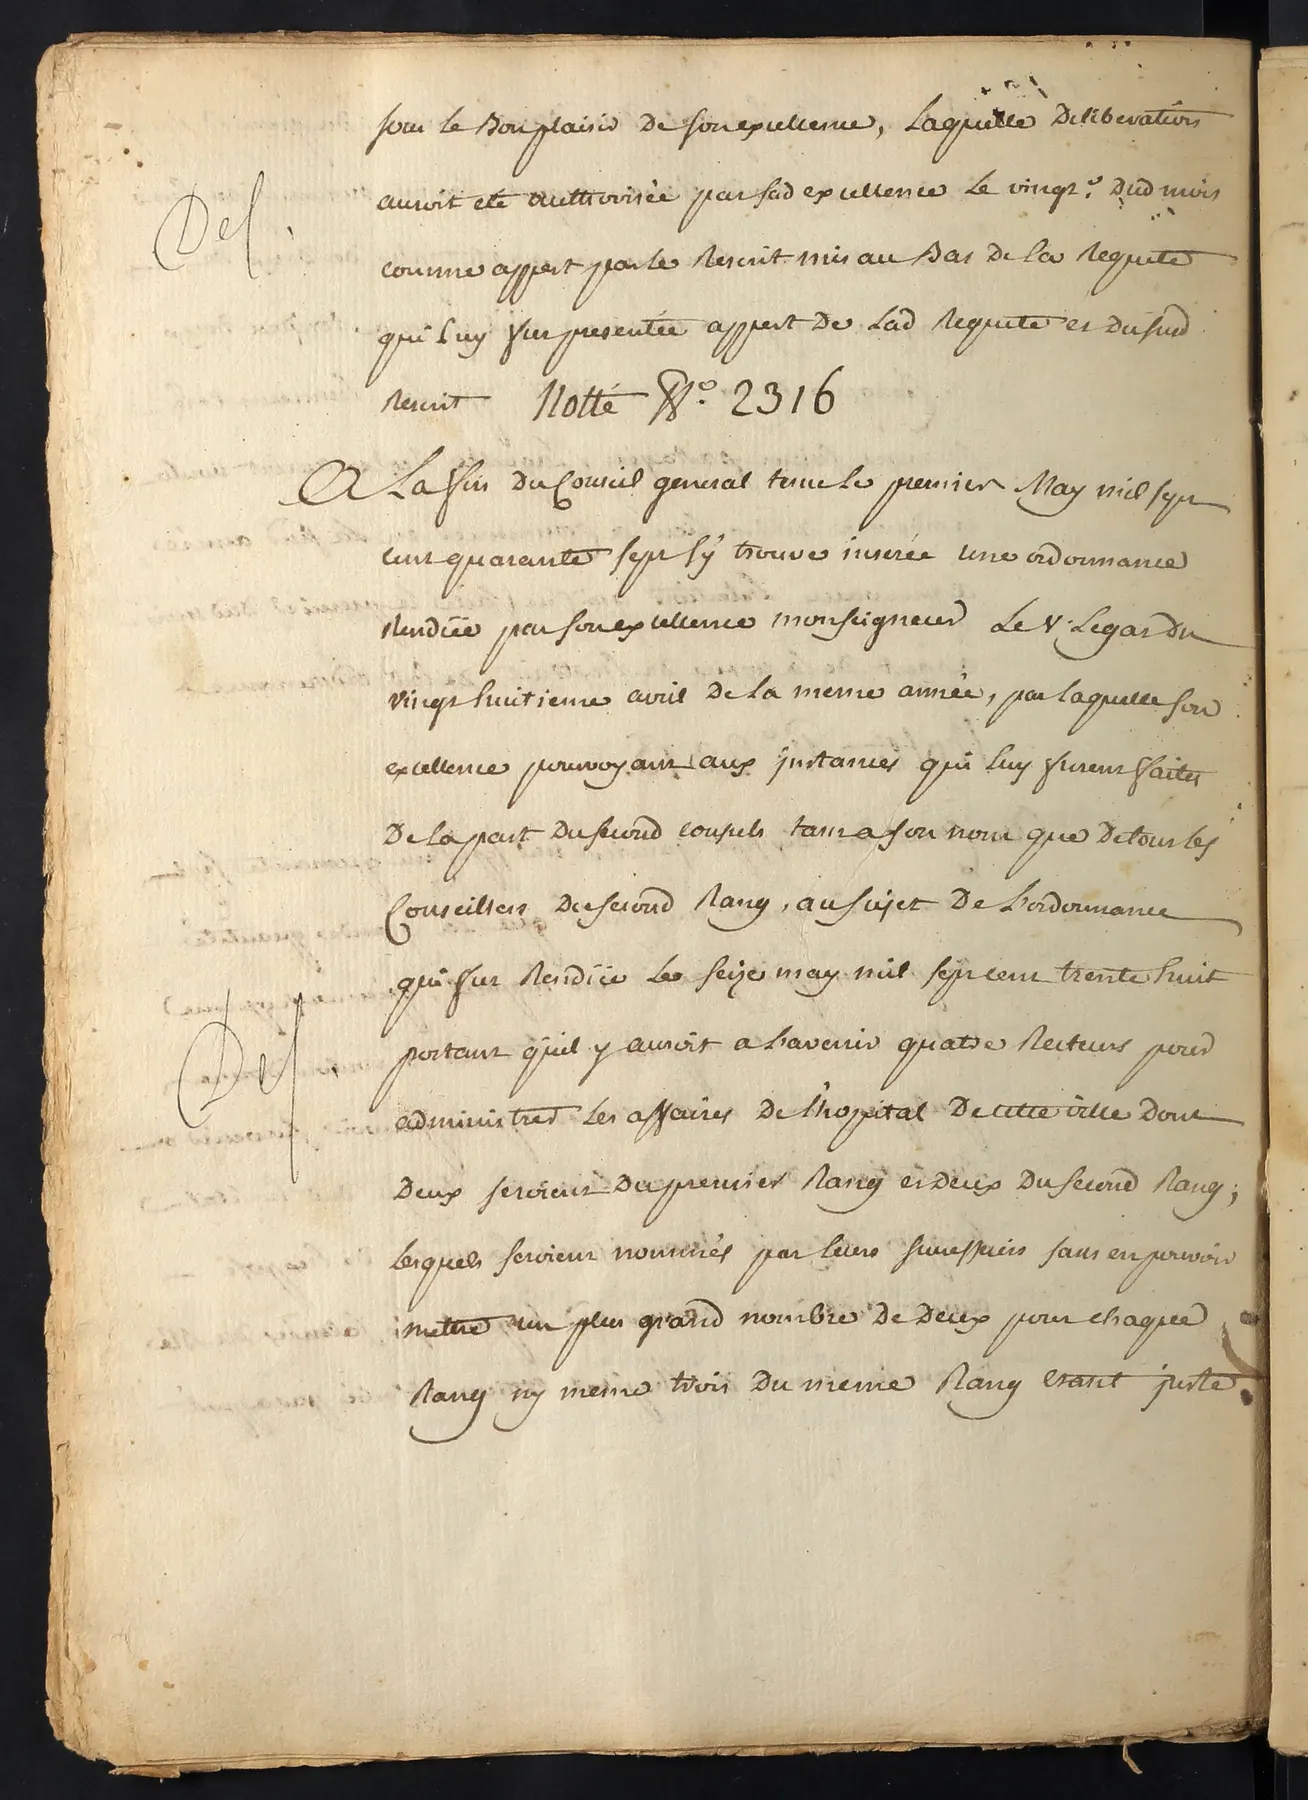 sous le Bon plaisir De son excellence, Laquelle Deliberation
auroit été authorisée par sad excellence Le vingt.e Dud mois
Del.
comme appert par le Rescrit mis au Bas De la Requete
qui luy fut presentée appert De Lad Requete et Dusud
Rescrit Notté N.o 2316
A La fin Du Conseil general tenu Le premier May mil sept
cent quarante sept s'y trouve inserée une ordonnance
Rendüe par son excellence monseigneur Le V. Legat Du
vingt huitieme avril De la meme année, par laquelle son
excellence pourvoyant aux instances qui luy furent faites
De la part Du second consuls tant a son nom que De tous les
Conseillers Du second Rang, au sujet De L'ordonnance
qui fut Rendüe Le seize may mil sept cent trente huit
portant qu'il y auroit a L'avenir quatre Recteurs pour
Del
administrer Les affaires De l'hopital De cette ville Dont
Deux seroient Du premier Rang et Deux Du second Rang;
Lesquels seroient nommés par leurs successeurs sans en pouvoir
mettre un plus grand nombre De Deux pour chaque
Rang ny meme trois Du meme Rang etant juste